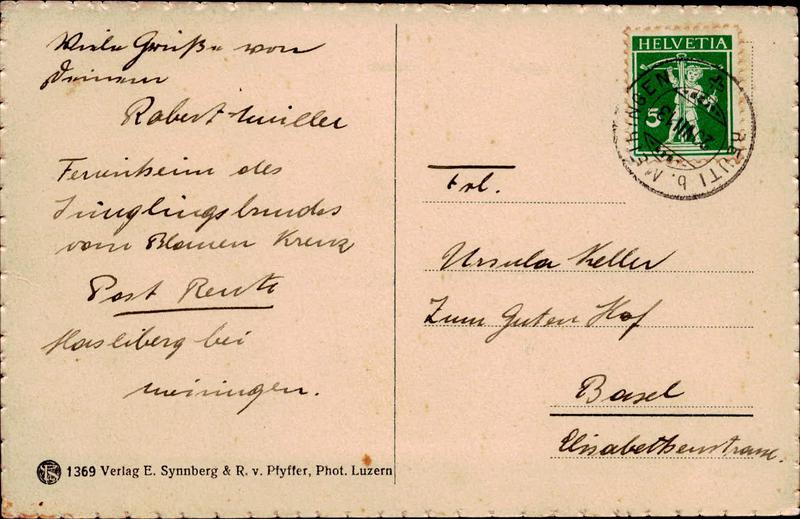 Viele Grüße von
Deinem
Robert Müller
Ferienheim des
Jünglingsbundes
vom Blauen Kreuz
Post Reuti
Hasliberg bei
Meiringen.
1369 Verlag E. Synnberg & R. v. Pfyffer, Phot. Luzern
HELVETIA
5
REUTI b. MEIRINGEN
Frl.
Ursula Keller
Zum Guten Hof
Basel
Elisabethenstrasse.